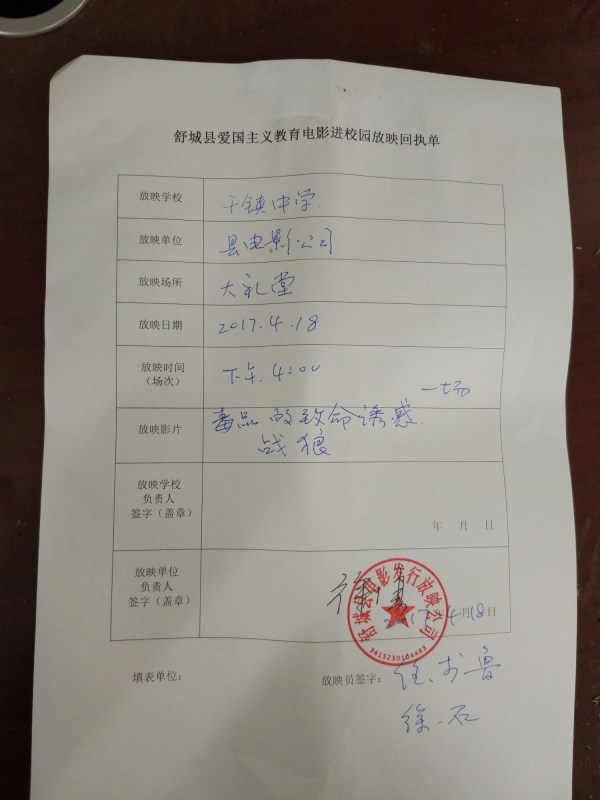 舒城县爱国主义教育电影进校园放映回执单
放映学校
干镇中学.
放映单位
县电影公司
放映场所
大礼堂
放映日期
2017.4.18
放映时间
(场次)
下午.4:00
一场
放映影片
毒品的致命诱惑.
战狼
放映学校
负责人
签字(盖章)
年 月 日
放映单位
负责人
签字(盖章)
舒城县电影发行放映公司
3415230104483
2017 4月18日
填表单位:
放映员签字:
徐.石